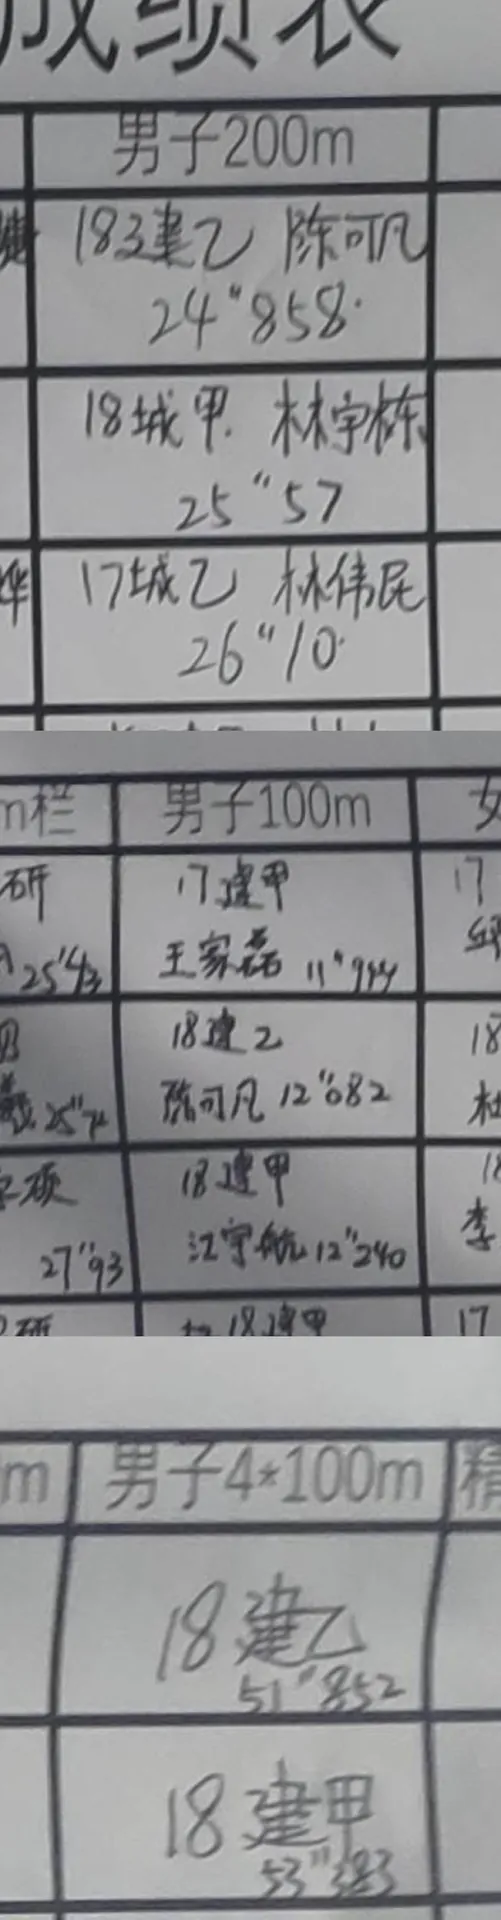 成绩表
男子200m
18建乙 陈可凡
24"858
18城甲 林宇栋
25"57
17城乙 林伟民
26"10
m栏 男子100m 女
研 17建甲 17
25"43 王家磊 11"944
18建乙 18
陈可凡 12"082
18建甲 18
27"93 江宇航 12"240 李
研 18建甲 17
m 男子4*100m 精
18建乙
51"852
18建甲
53"383